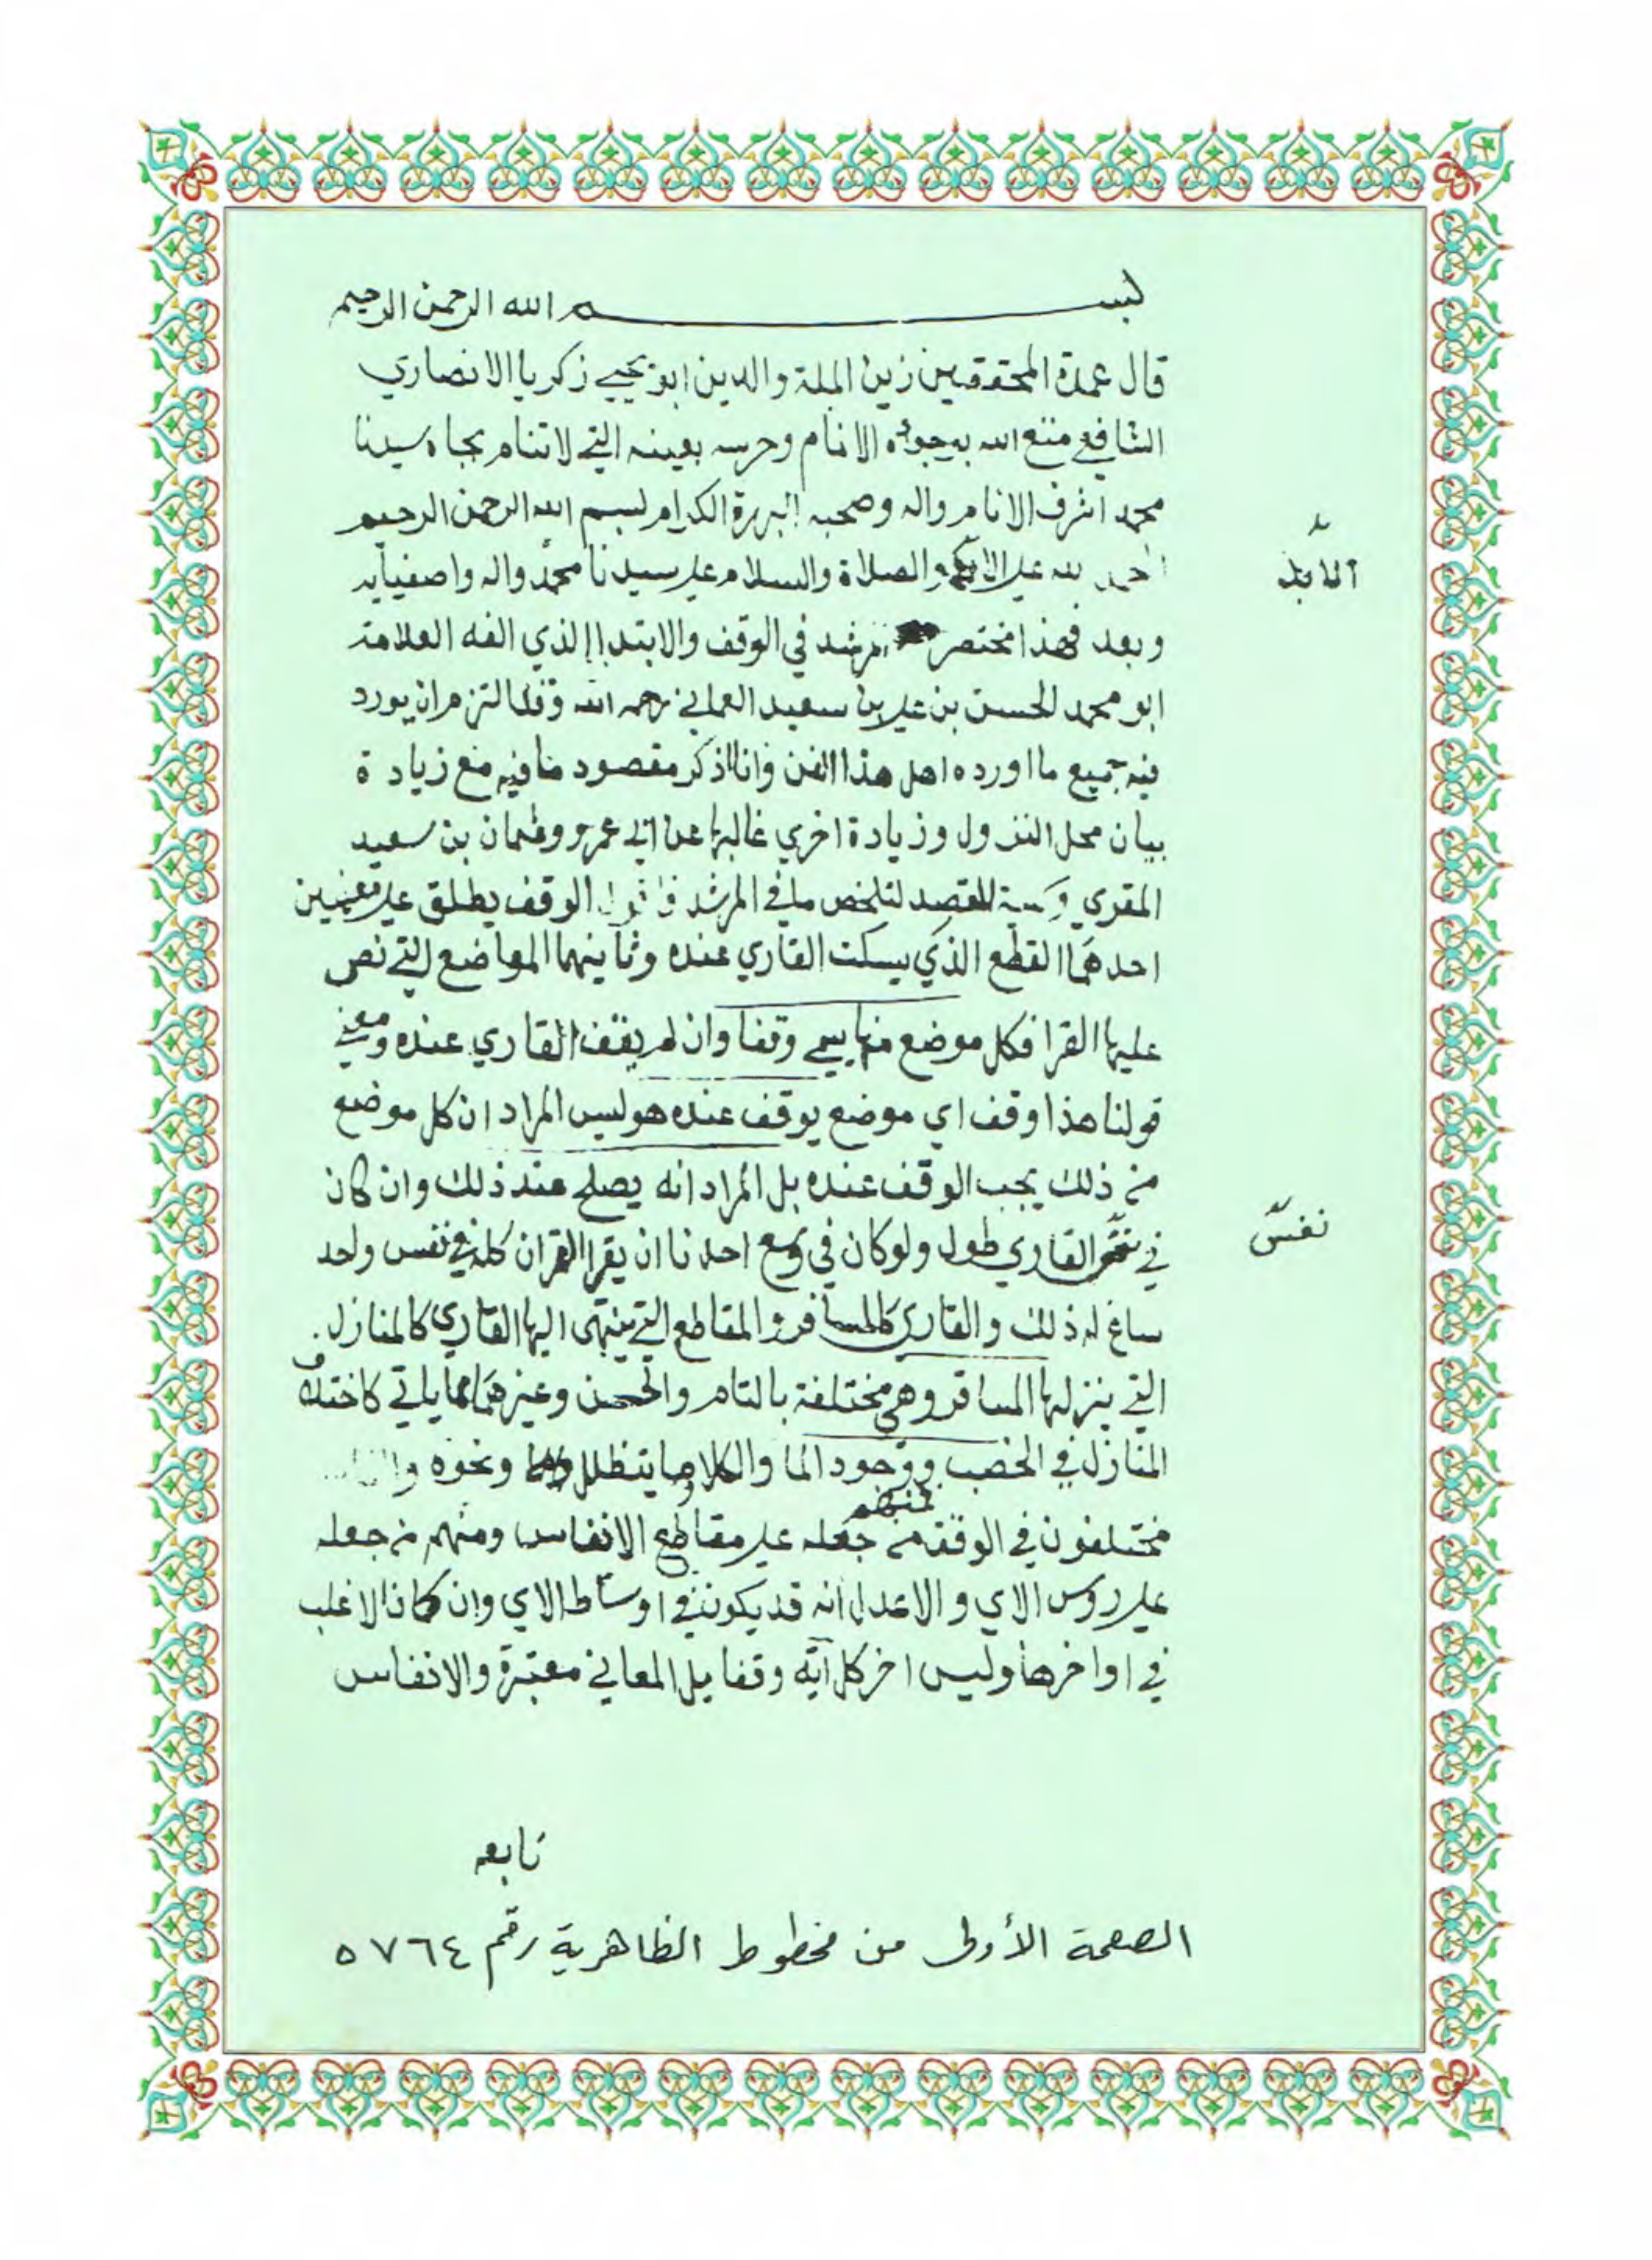 بسم الله الرحمن الرحيم
قال عمدة المحققين زين الملة والدين ابو يحيي زكريا الانصاري
الشافعي متع الله بوجوده الانام وحرسه بعينه التي لا تنام بجاه سيدنا
محمد اشرف الانام واله وصحبه البررة الكرام بسم الله الرحمن الرحيم
احمد لله علي والصلاة والسلام علي سيدنا محمد واله واصفيايه
الايه
وبعد فهذا مختصر المرشد في الوقف والابتدا الذي الفه العلامة
ابو محمد الحسن بن علي بن سعيد العماني رحمه الله وقد التزم ان يورد
فيه جميع ما اورده اهل هذا الفن وانا اذكر مقصود ما فيه مع زيادة
بيان محل النزول وزيادة اخري غالبها عن ابي عمرو عثمان بن سعيد
المقري وسميته المقصد لتلخص ما في المرشد فاقول الوقف يطلق علي معنيين
احدهما القطع الذي يسكت القاري عنده وثانيهما المواضع التي نص
عليها القرا فكل موضع منها يسمي وقفا وان لم يقف القاري عنده ومعني
قولنا هذا وقف اي موضع يوقف عنده هو ليس المراد ان كل موضع
من ذلك يجب الوقف عنده بل المراد انه يصلح عند ذلك وان كان
في القاري طول ولو كان في وسع احدنا ان يقرا القران كله في نفس واحد
نفس
ساغ له ذلك والقاري كالمسافر والمقاطع التي ينتهي اليها القاري كالمنازل
التي ينزلها المسافر وهي مختلفة بالتام والحسن وغيرهما مما ياتي كاختلاف
المنازل في الخصب ووجود الما والكلا وما يتظلل ونحوه
مختلفون في الوقف منهم من جعله علي مقاطع الانفاس ومنهم من جعله
علي روس الاي والاعدل انه قد يكون في اوساط الاي وان كان الاغلب
في اواخرها وليس اخر كل آية وقفا بل المعاني معتبرة والانفاس
تابعه
الصفحة الأولى من مخطوط الظاهرية رقم ٥٧٦٤